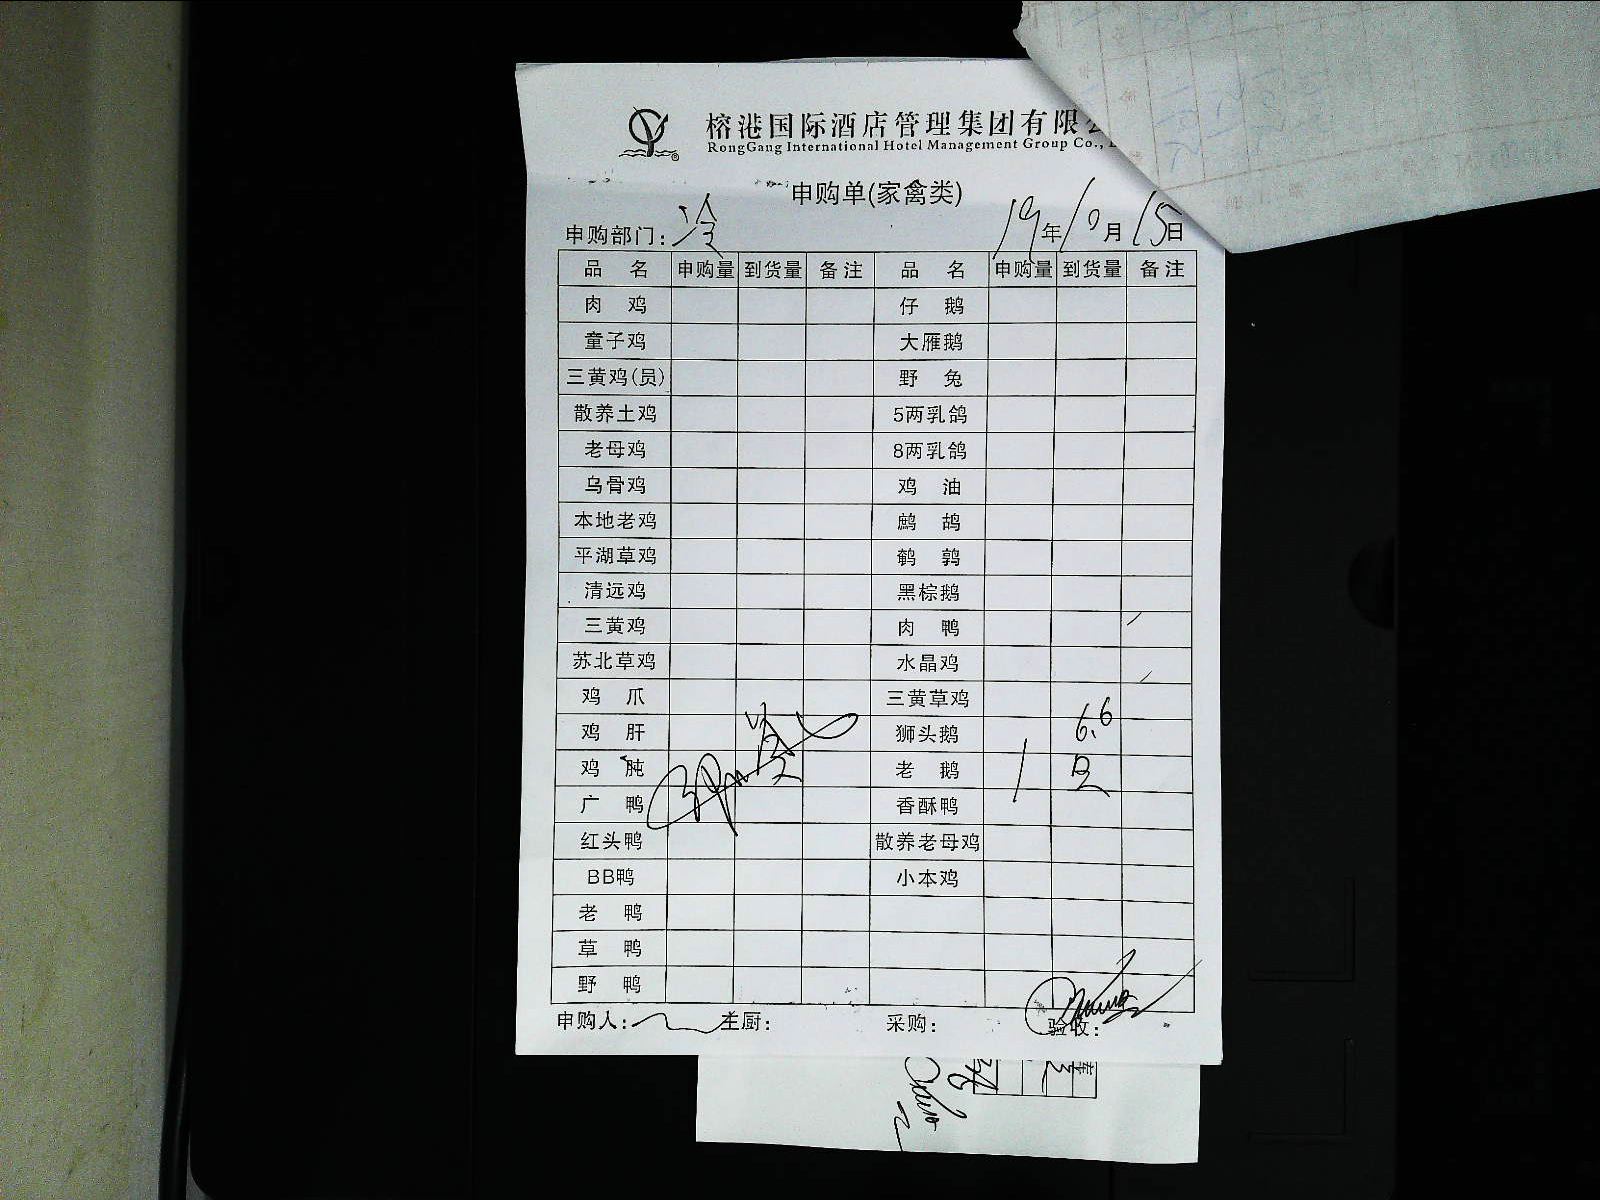 榕港国际酒店管理集团有限
RongGang International Hotel Management Group Co.,
申购单(家禽类)
申购部门: 冷 19年10月15日
品名 申购量 到货量 备注 品名 申购量 到货量 备注
肉鸡 仔鹅
童子鸡 大雁鹅
三黄鸡(员) 野兔
散养土鸡 5两乳鸽
老母鸡 8两乳鸽
乌骨鸡 鸡油
本地老鸡 鹧鸪
平湖草鸡 鹌鹑
清远鸡 黑棕鹅
三黄鸡 肉鸭
苏北草鸡 水晶鸡
鸡爪 三黄草鸡
鸡肝 狮头鹅 6.6
鸡肫 老鹅 1
广鸭 香酥鸭
红头鸭 散养老母鸡
BB鸭 小本鸡
老鸭
草鸭
野鸭
申购人: 主厨: 采购: 验收: